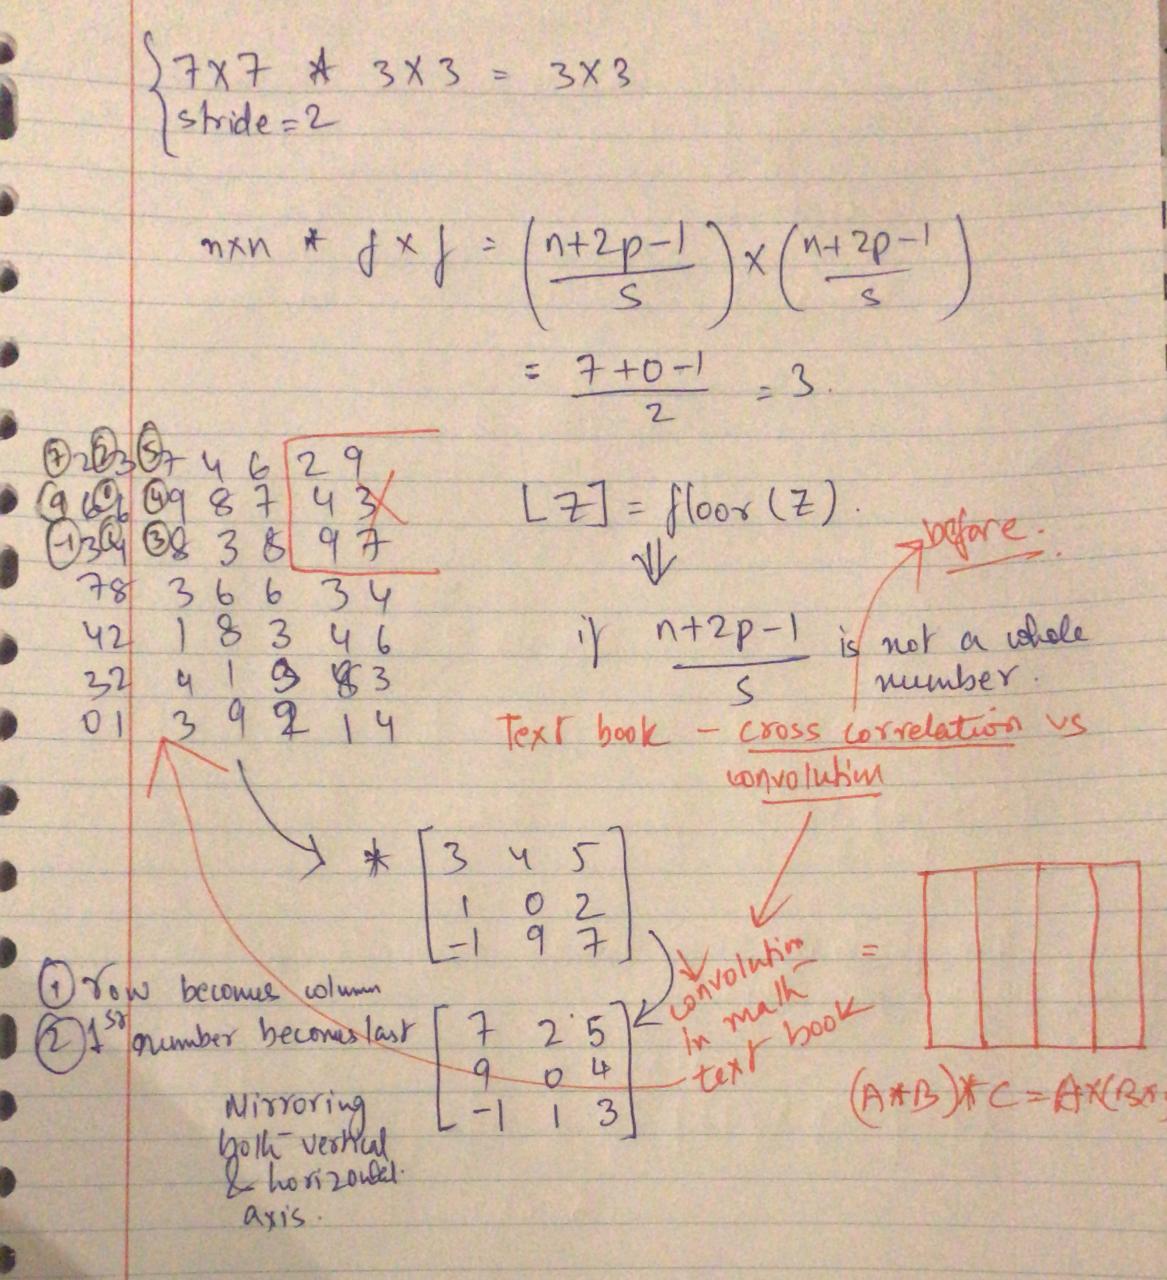 7x7 * 3x3 = 3x3
stride=2
nxn * fxf = (n+2p-1 / s) x (n+2p-1 / s)
= 7+0-1 / 2 = 3.
⑦ 2 ② 3 ⑤ 7 4 6 2 9
9 6 6 ④ 9 8 7 4 3
-1 3 4 ③ 8 3 8 9 7
78 3 6 6 3 4
42 1 8 3 4 6
32 4 1 9 8 3
01 3 9 2 1 4
[Z] = floor(Z).
⇓
before.
if n+2p-1 / s is not a whole
number.
Text book - cross correlation vs
convolution
* [3 4 5
1 0 2
-1 9 7]
① row becomes column
② 1st number becomes last
[7 2 5
9 0 4
-1 1 3]
Mirroring
both vertical
& horizontal
axis.
convolution
in math
text book
=
(A*B)*C = A*(B*